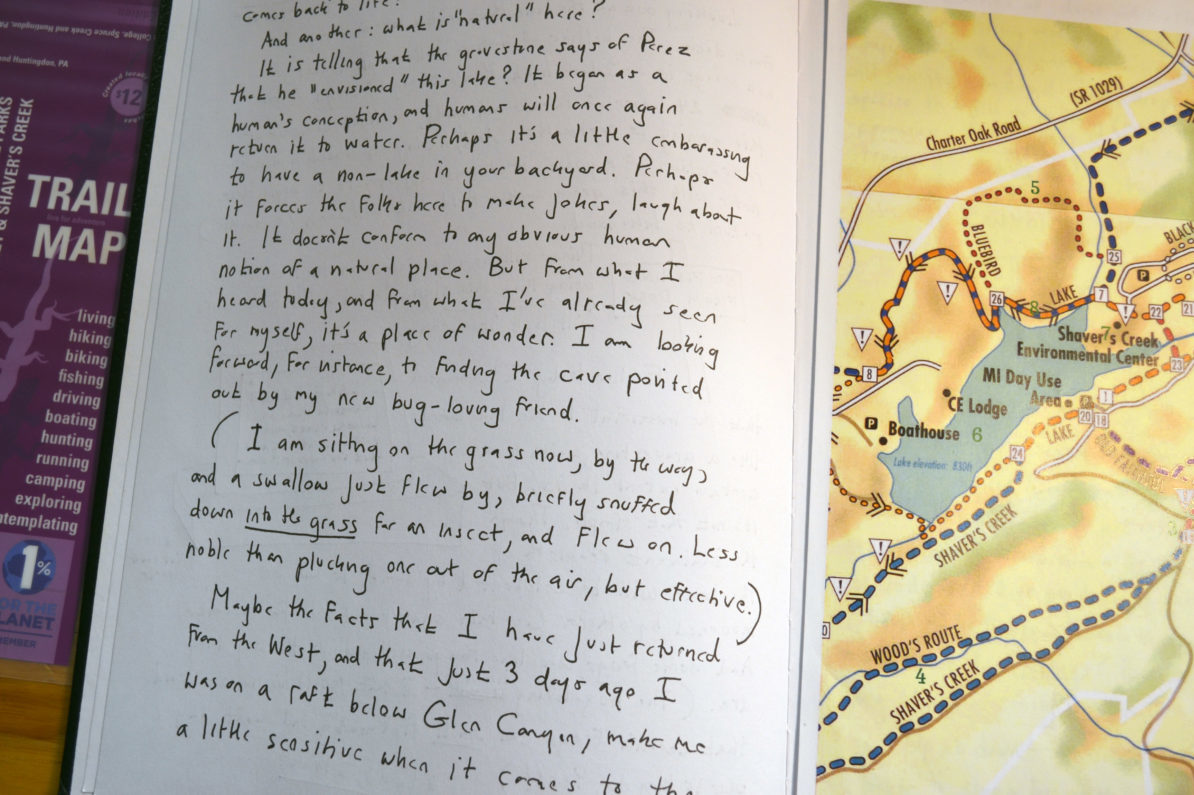 College, Spruce Creek and Huntingdon, PA
nd Huntingdon, PA
$12
PARKS
& SHAVER'S CREEK
TRAIL
MAP
living
hiking
biking
fishing
driving
boating
hunting
running
camping
exploring
ntemplating
1%
OR THE
LANET
MEMBER
comes back to life?
And another: what is "natural" here?
It is telling that the gravestone says of Perez
that he "envisioned" this lake? It began as a
human's conception, and humans will once again
return it to water. Perhaps it's a little embarassing
to have a non-lake in your backyard. Perhaps
it forces the folks here to make jokes, laugh about
it. It doesn't conform to any obvious human
notion of a natural place. But from what I
heard today, and from what I've already seen
for myself, it's a place of wonder. I am looking
forward, for instance, to finding the cave pointed
out by my new bug-loving friend.
(I am sitting on the grass now, by the way,
and a swallow just flew by, briefly snuffed
down into the grass for an insect, and flew on. Less
noble than plucking one out of the air, but effective.)
Maybe the facts that I have just returned
from the West, and that just 3 days ago I
was on a raft below Glen Canyon, make me
a little sensitive when it comes to the
Charter Oak Road
(SR 1029)
5
BLUEBIRD
25
P
BLACK
26
8
LAKE
7
22
21
Shaver's Creek
7
Environmental Center
23
8
MI Day Use
Area
1
CE Lodge
20
18
P
Boathouse
6
LAKE
24
Lake elevation: 830ft
SHAVER'S CREEK
0
WOOD'S ROUTE
4
SHAVER'S CREEK